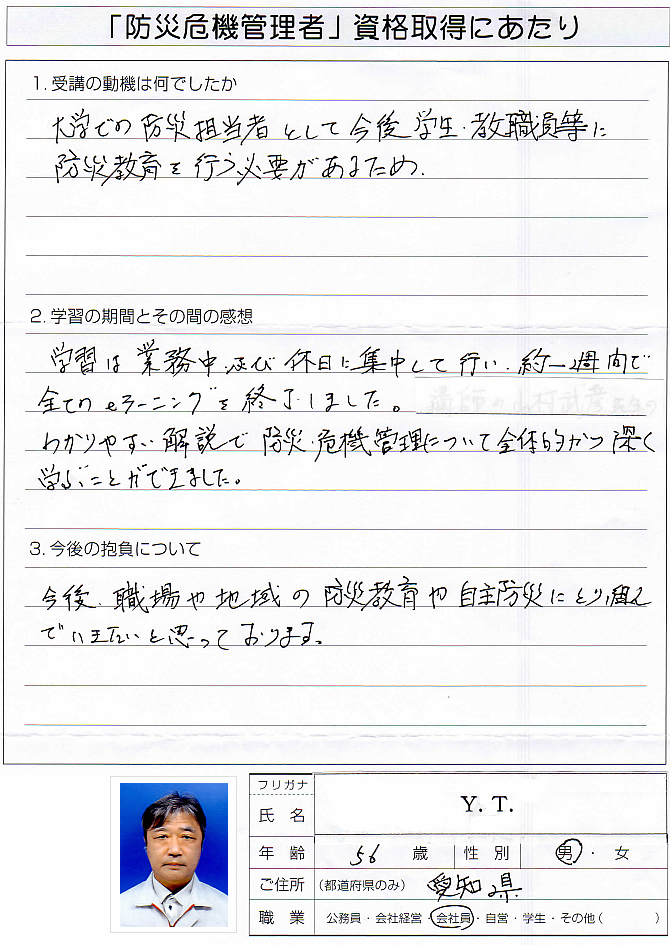 「防災危機管理者」資格取得にあたり
1. 受講の動機は何でしたか
大学での防災担当者として今後、学生・教職員等に
防災教育を行う必要があるため.
2. 学習の期間とその間の感想
学習は業務中及び休日に集中して行い、約一週間で
全てのeラーニングを終了しました。講師の山村武彦先生の
わかりやすい解説で防災・危機管理について全体的かつ深く
学ぶことができました。
3. 今後の抱負について
今後、職場や地域の防災教育や自主防災にとり組ん
でいきたいと思っております。
フリガナ
氏 名 Y. T.
年 齢 56 歳 性 別 男 ・ 女
ご住所 (都道府県のみ) 愛知県
職 業 公務員・会社経営・会社員・自営・学生・その他( )